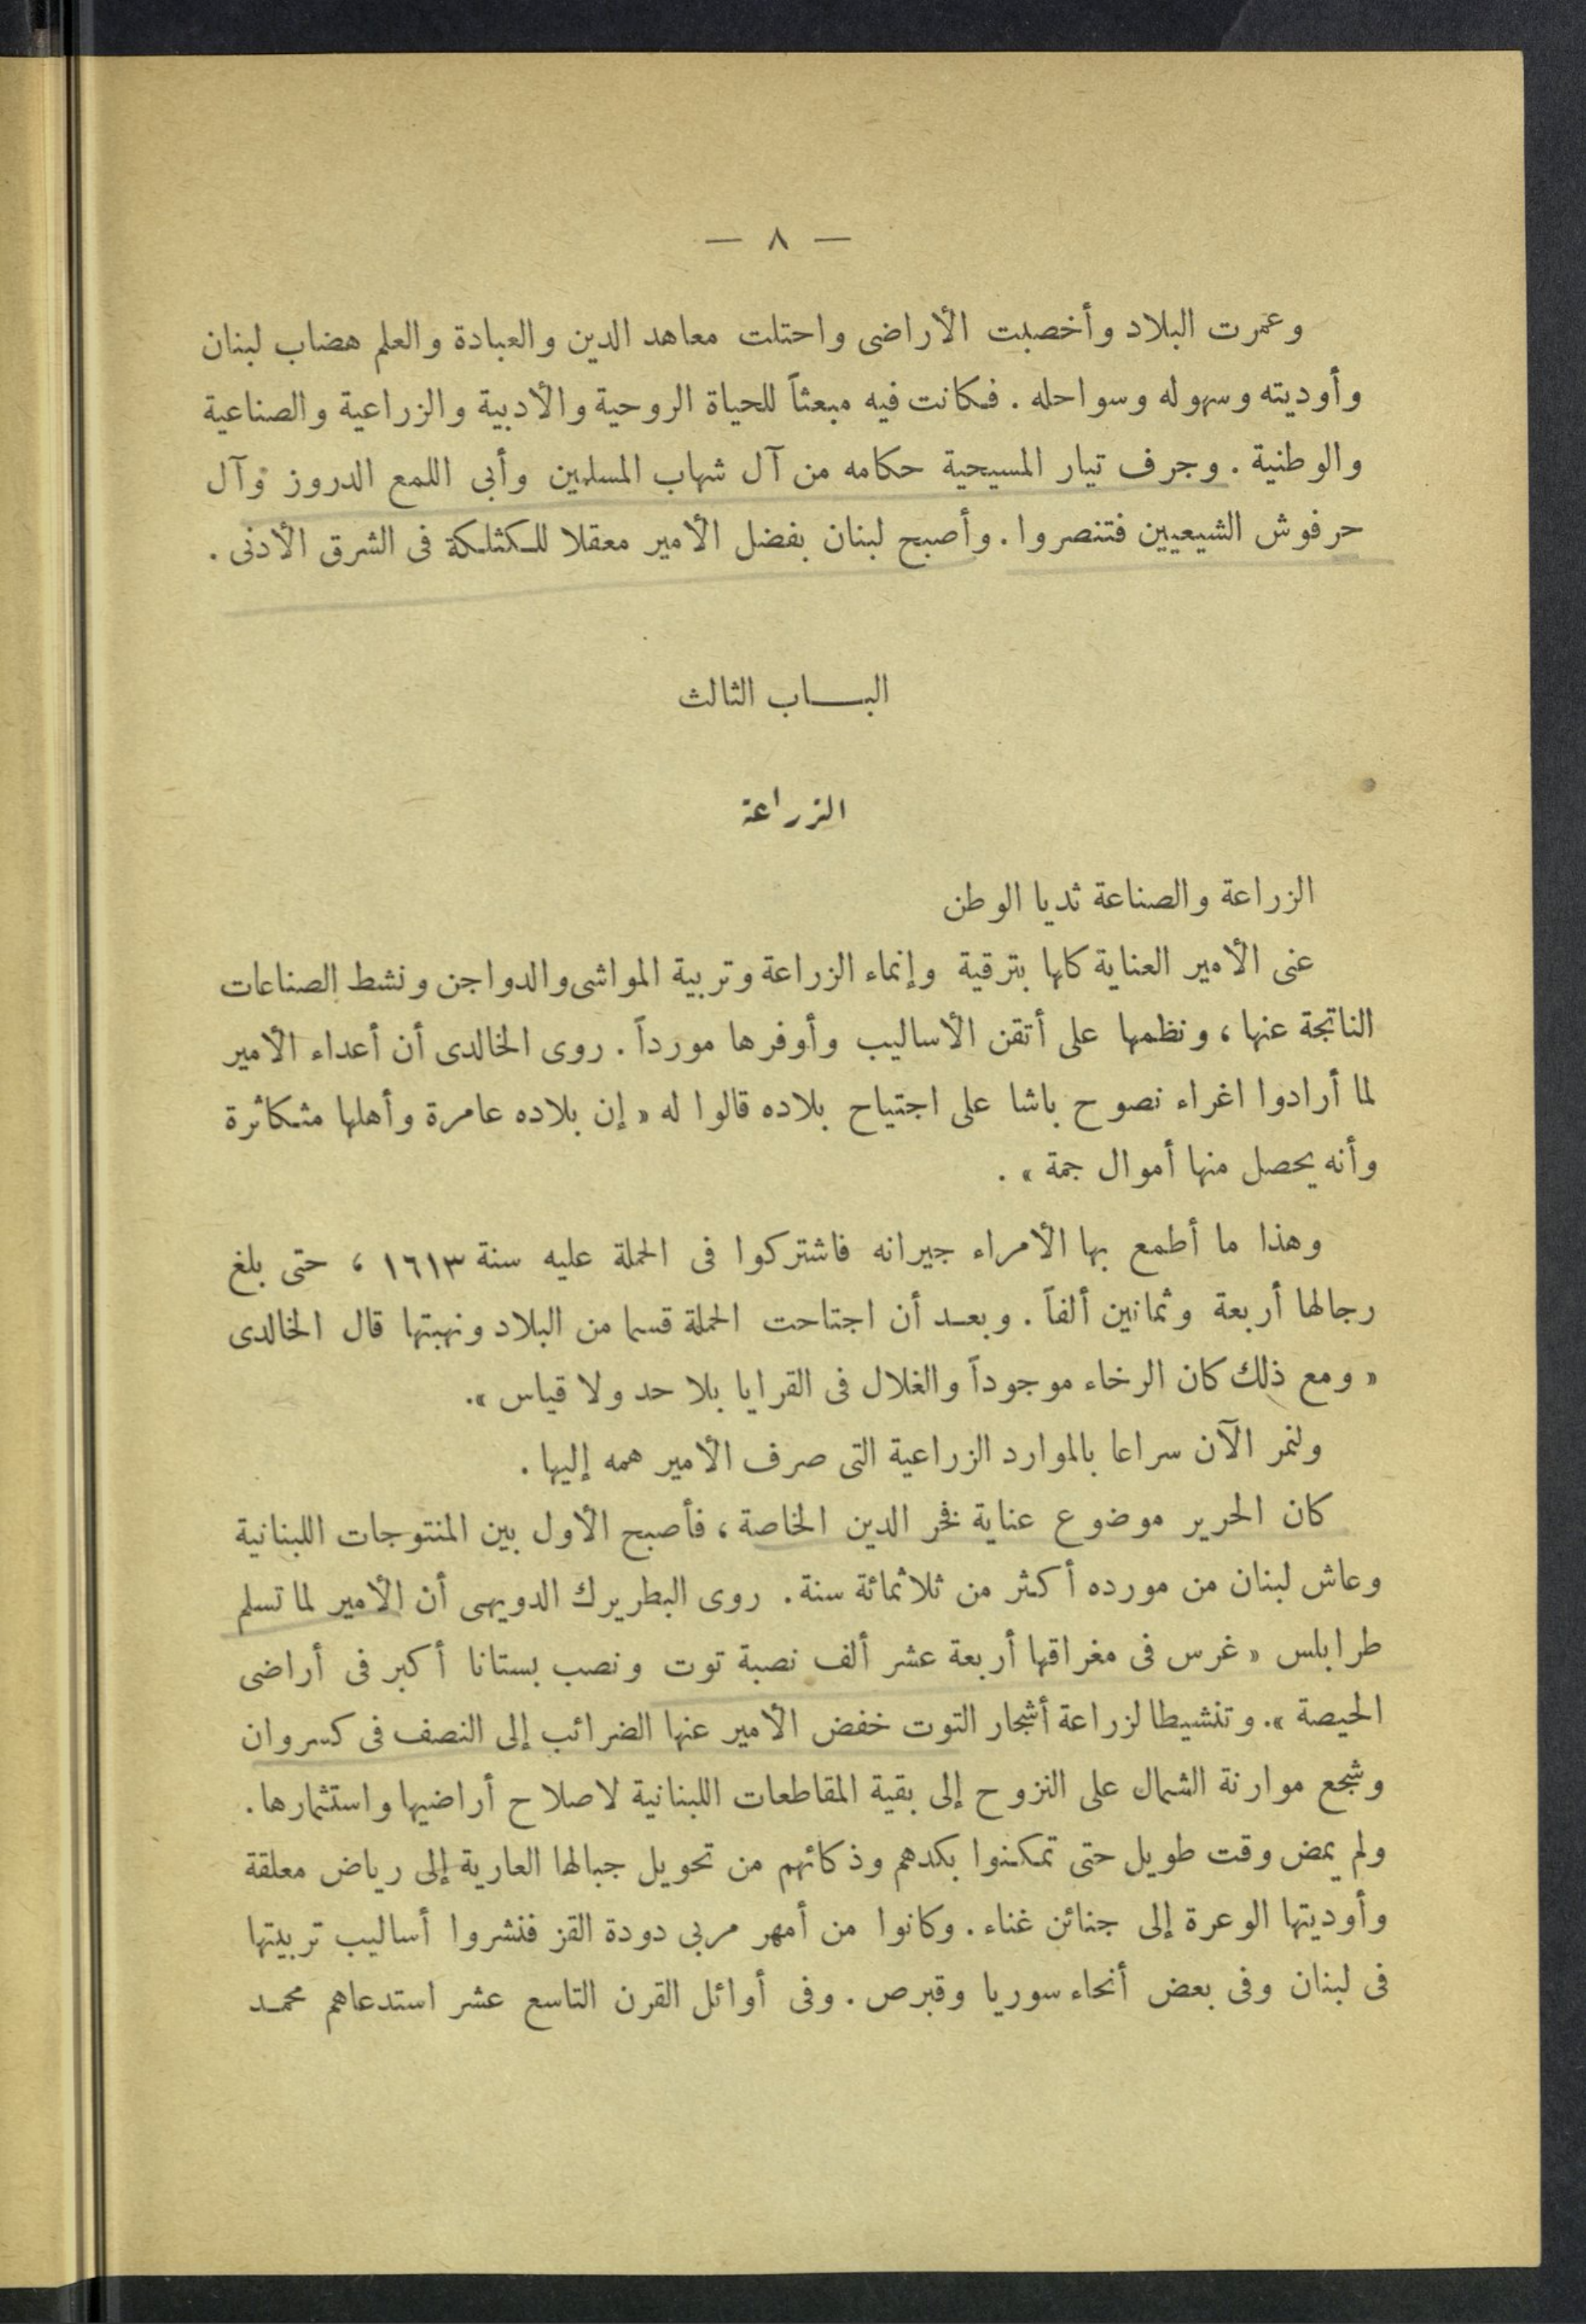 — ٨ —
وعمرت البلاد وأخصبت الأراضى واحتلت معاهد الدين والعبادة والعلم هضاب لبنان
وأوديته وسهوله وسواحله . فكانت فيه مبعثاً للحياة الروحية والأدبية والزراعية والصناعية
والوطنية . وجرف تيار المسيحية حكامه من آل شهاب المسلمين وأبى اللمع الدروز وآل
حرفوش الشيعيين فتنصروا . وأصبح لبنان بفضل الأمير معقلا للكثلكة فى الشرق الأدنى .
البـــاب الثالث
الزراعة
الزراعة والصناعة ثديا الوطن
عنى الأمير العناية كلها بترقية وإنماء الزراعة وتربية المواشى والدواجن ونشط الصناعات
الناتجة عنها ، ونظمها على أتقن الأساليب وأوفرها مورداً . روى الخالدى أن أعداء الأمير
لما أرادوا اغراء نصوح باشا على اجتياح بلاده قالوا له « إن بلاده عامرة وأهلها متكاثرة
وأنه يحصل منها أموال جمة » .
وهذا ما أطمع بها الأمراء جيرانه فاشتركوا فى الحملة عليه سنة ١٦١٣ ، حتى بلغ
رجالها أربعة وثمانين ألفاً . وبعـد أن اجتاحت الحملة قسما من البلاد ونهبتها قال الخالدى
« ومع ذلك كان الرخاء موجوداً والغلال فى القرايا بلا حد ولا قياس ».
ولنمر الآن سراعا بالموارد الزراعية التى صرف الأمير همه إليها .
كان الحرير موضوع عناية فخر الدين الخاصة ، فأصبح الأول بين المنتوجات اللبنانية
وعاش لبنان من مورده أكثر من ثلاثمائة سنة . روى البطريرك الدويهى أن الأمير لما تسلم
طرابلس « غرس فى مغراقها أربعة عشر ألف نصبة توت ونصب بستانا أكبر فى أراضى
الحيصة ». وتنشيطا لزراعة أشجار التوت خفض الأمير عنها الضرائب إلى النصف فى كسروان
وشجع موارنة الشمال على النزوح إلى بقية المقاطعات اللبنانية لاصلاح أراضيها واستثمارها .
ولم يمض وقت طويل حتى تمكنوا بكدهم وذكائهم من تحويل جبالها العارية إلى رياض معلقة
وأوديتها الوعرة إلى جنائن غناء . وكانوا من أمهر مربى دودة القز فنشروا أساليب تربيتها
فى لبنان وفى بعض أنحاء سوريا وقبرص . وفى أوائل القرن التاسع عشر استدعاهم محمـد